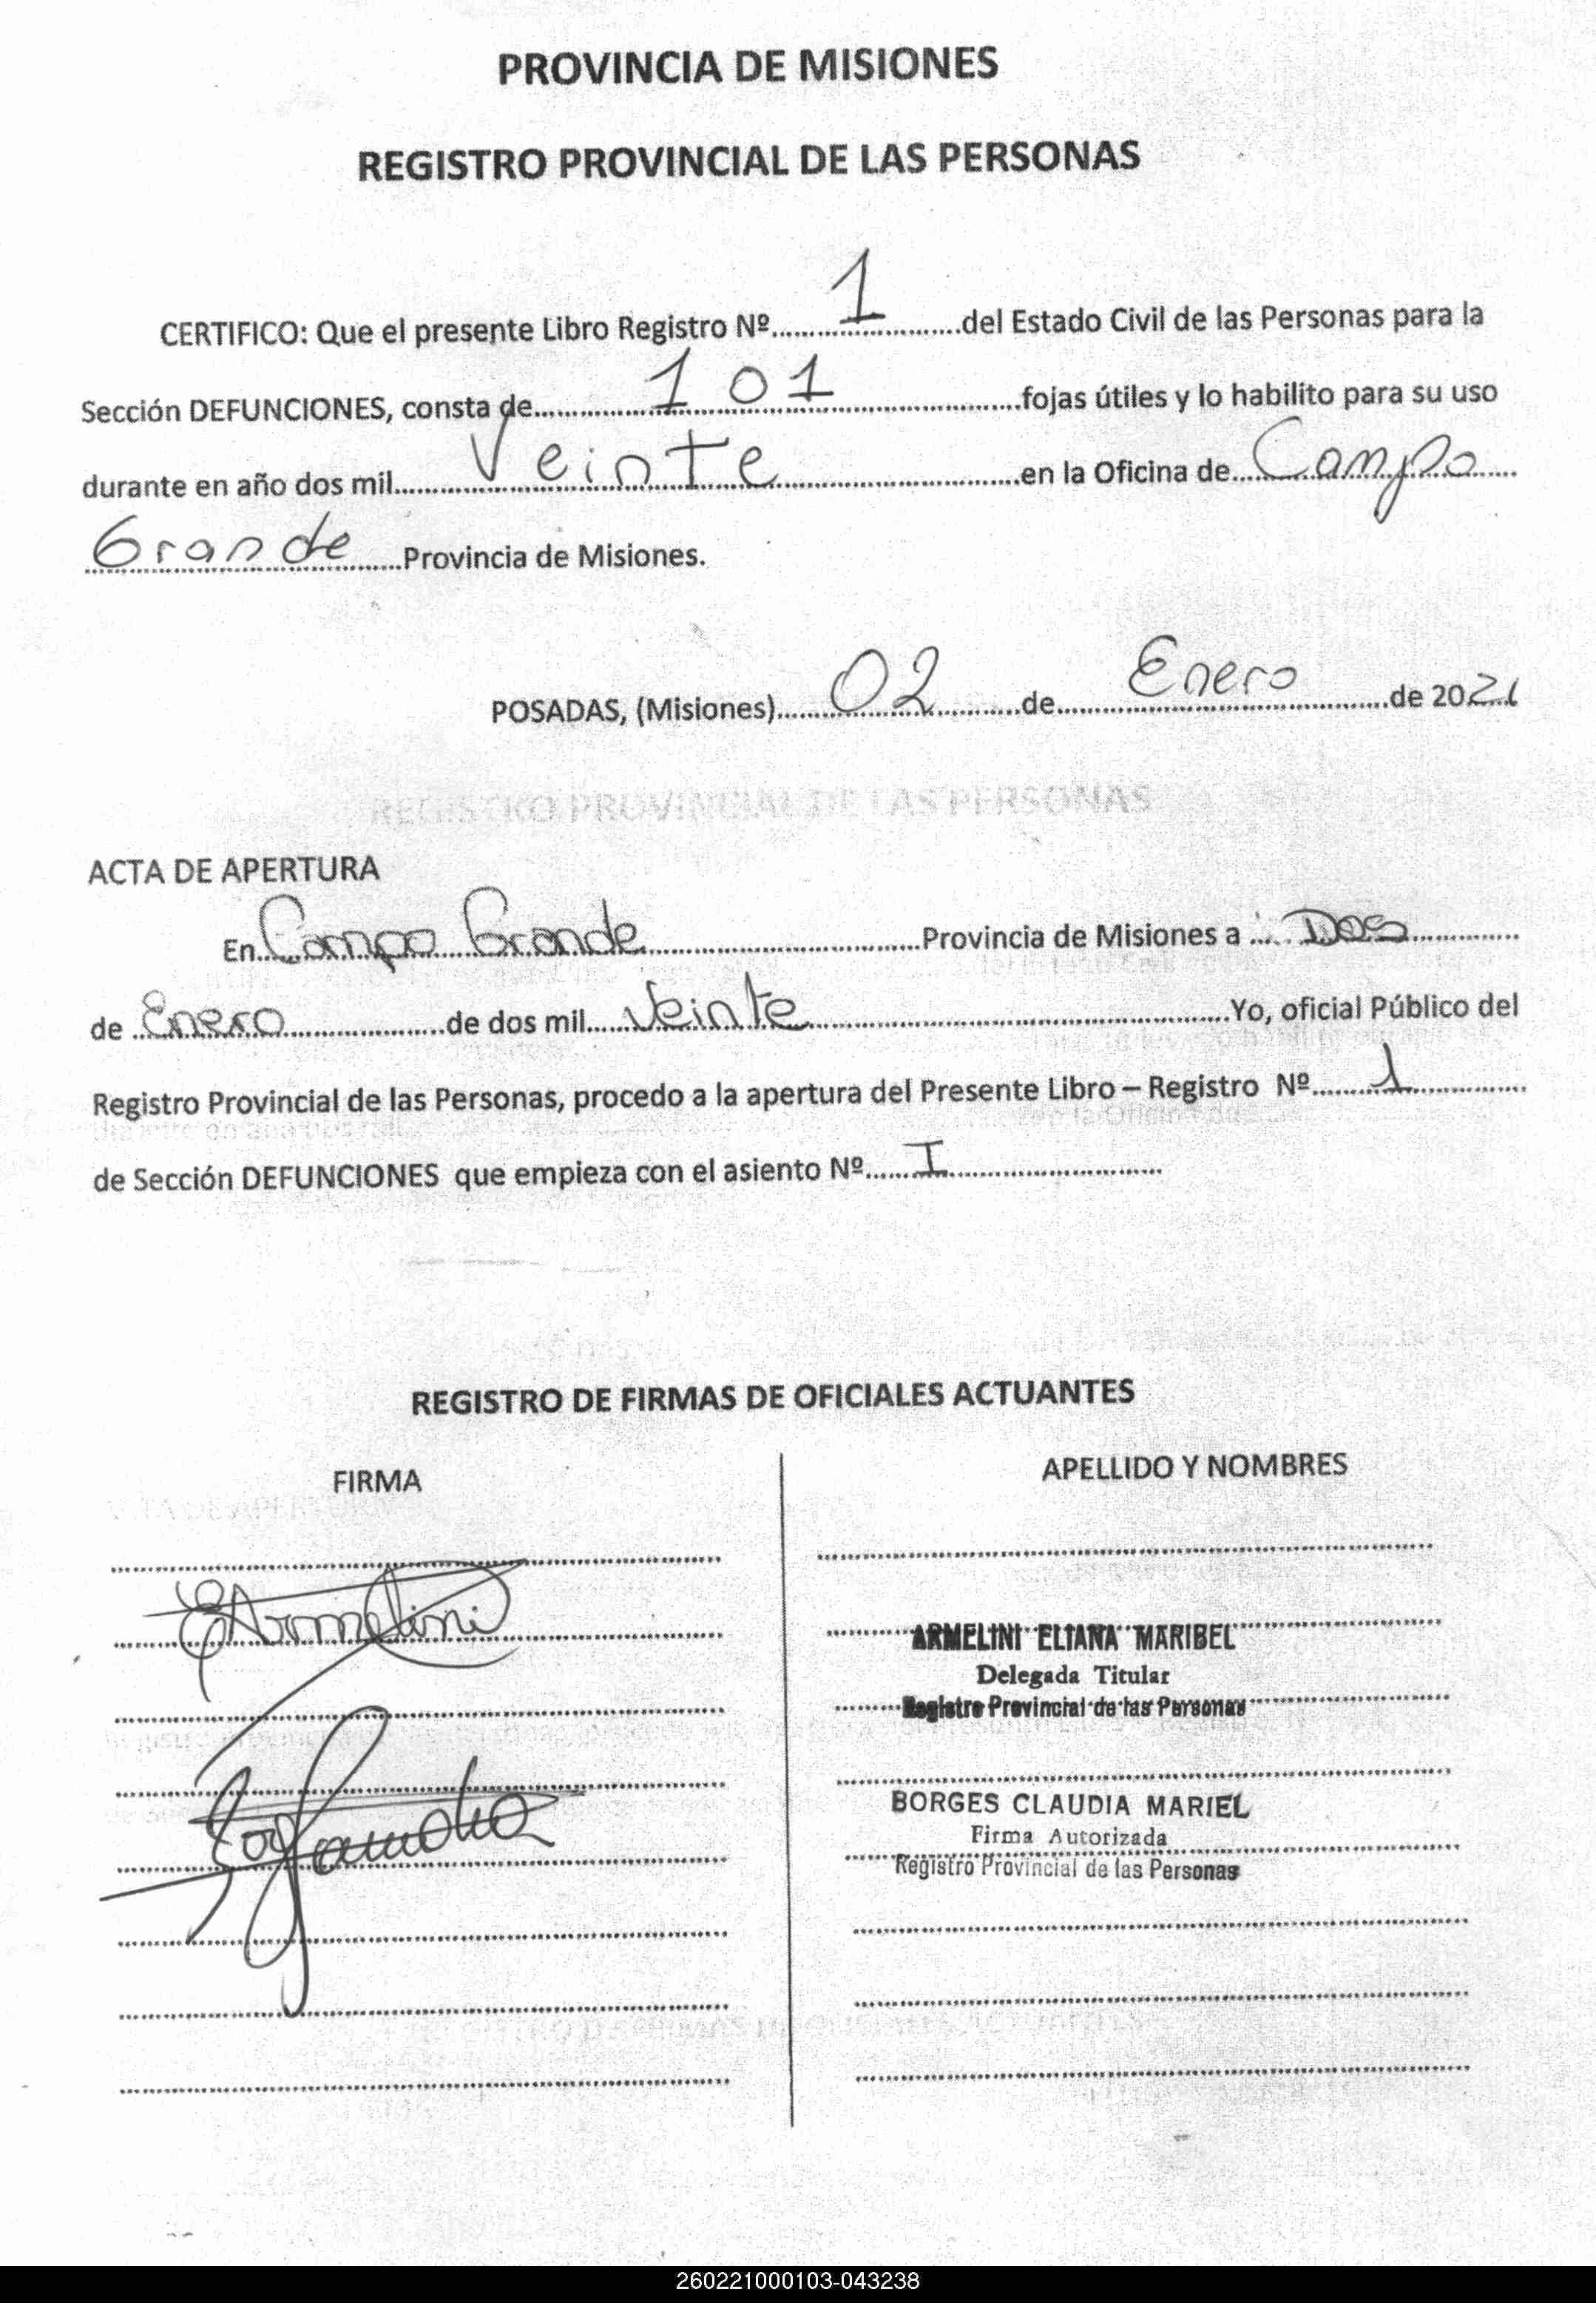 PROVINCIA DE MISIONES
REGISTRO PROVINCIAL DE LAS PERSONAS
CERTIFICO: Que el presente Libro Registro Nº 1 del Estado Civil de las Personas para la
Sección DEFUNCIONES, consta de 101 fojas útiles y lo habilito para su uso
durante en año dos mil Veinte en la Oficina de Campo
Grande Provincia de Misiones.
POSADAS, (Misiones) 02 de Enero de 2021
REGISTRO PROVINCIAL DE LAS PERSONAS
ACTA DE APERTURA
En Campo Grande Provincia de Misiones a Dos
de Enero de dos mil Veinte Yo, oficial Público del
Registro Provincial de las Personas, procedo a la apertura del Presente Libro – Registro Nº 1
de Sección DEFUNCIONES que empieza con el asiento Nº I
REGISTRO DE FIRMAS DE OFICIALES ACTUANTES
FIRMA APELLIDO Y NOMBRES
EArmelini
ARMELINI ELIANA MARIBEL
Delegada Titular
Registro Provincial de las Personas
BORGES CLAUDIA MARIEL
Firma Autorizada
Registro Provincial de las Personas
260221000103-043238